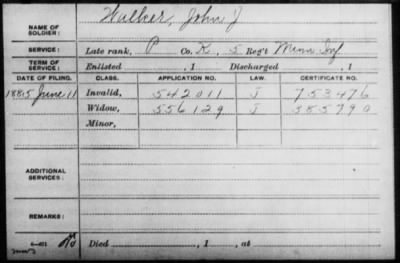 NAME OF SOLDIER: Walker, John J
SERVICE: Late rank, P Co. K, 5 Reg't Minn Inf
TERM OF SERVICE: Enlisted , 1 Discharged , 1
DATE OF FILING. CLASS. APPLICATION NO. LAW. CERTIFICATE NO.
1885 June 11 Invalid, 542011 J 753476
Widow, 556129 J 385790
Minor,
ADDITIONAL SERVICES:
REMARKS:
Died , 1 , at